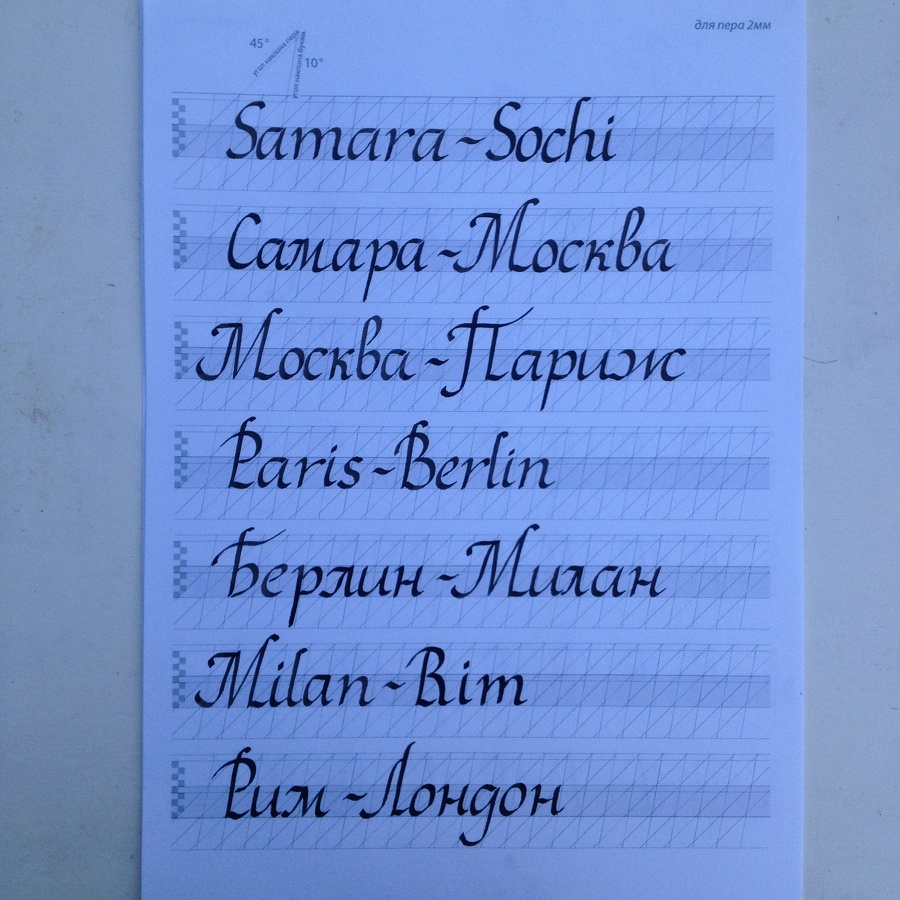 для пера 2мм
45°
угол наклона пера
угол наклона буквы
10°
Samara ~ Sochi
Самара ~ Москва
Москва ~ Париж
Paris ~ Berlin
Берлин ~ Милан
Milan ~ Rim
Рим ~ Лондон